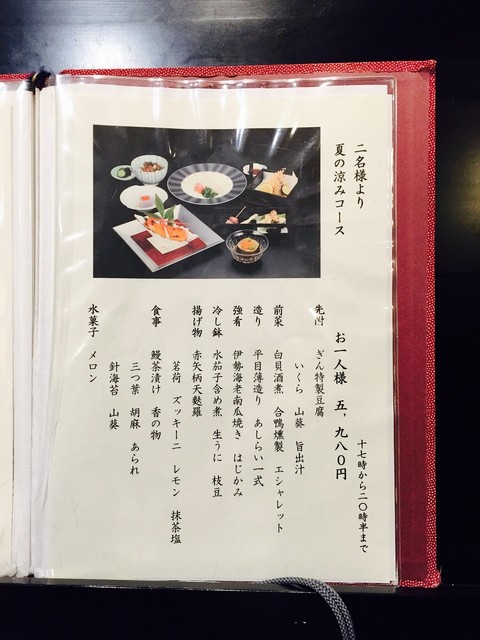 二名様より
夏の涼みコース
十七時から二〇時半まで
お一人様 五,九八〇円
先附 ぎん特製豆腐
いくら 山葵 旨出汁
前菜 白貝酒煮 合鴨燻製 エシャレット
造り 平目薄造り あしらい一式
強肴 伊勢海老南瓜焼き はじかみ
冷し鉢 水茄子含め煮 生うに 枝豆
揚げ物 赤矢柄天麩羅
茗荷 ズッキーニ レモン 抹茶塩
食事 鰻茶漬け 香の物
三つ葉 胡麻 あられ
針海苔 山葵
水菓子 メロン